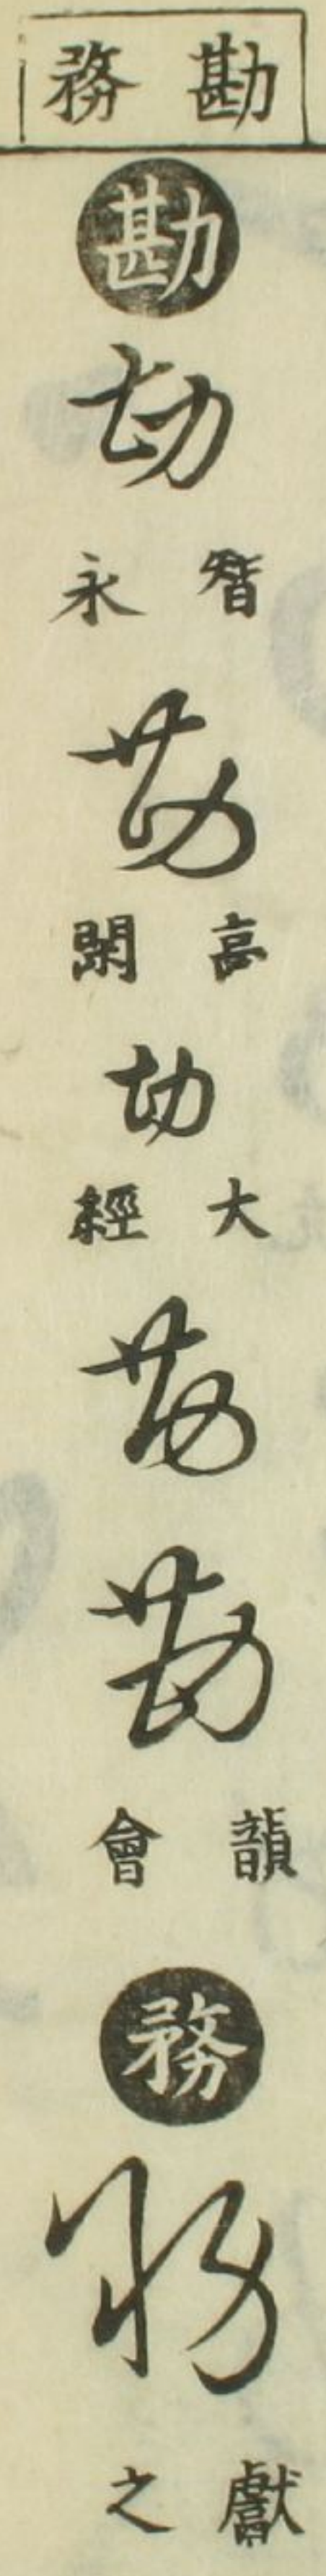 勘務
勘
勘
智永
勘
高閑
勘
大經
勘
勘
韻會
務
務
獻之